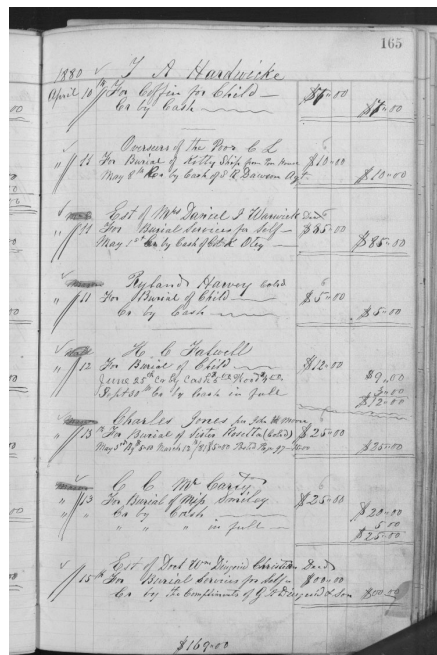 165
1880 T A Hardwicke
April 10th For Coffin for Child $7-00
Cr by Cash $7-00
Overseers of the Poor C L
" 11 For Burial of Kitty from Poor House $10-00
May 8th Cr by Cash of S R Dawson Agt $10-00
Est of Mrs Daniel J Warwick Decd
" 11 For Burial Services for Self $85-00
May 1st Cr by Cash of Otey $85-00
Ryland Harvey Cold
" 11 For Burial of Child $5-00
Cr by Cash $5-00
H C Falwell
" 12 For Burial of Child $12-00
June 25th Cr by Cash $9-00
Sept 30th Cr by Cash in full 3-00
$12-00
Charles Jones for John W Moore
" 13th For Burial of Sister Rosetta (Cold) $25-00
May 3rd March 12th $25-00
C C McCarty
" 13 For Burial of Miss Smiley $25-00
" " Cr by Cash $20-00
" " " " in full 5-00
$25-00
Est of Doct Wm Christian Decd
" 15th For Burial Services for Self $00-00
Cr by The Compliments of & Son $00-00
$169-00